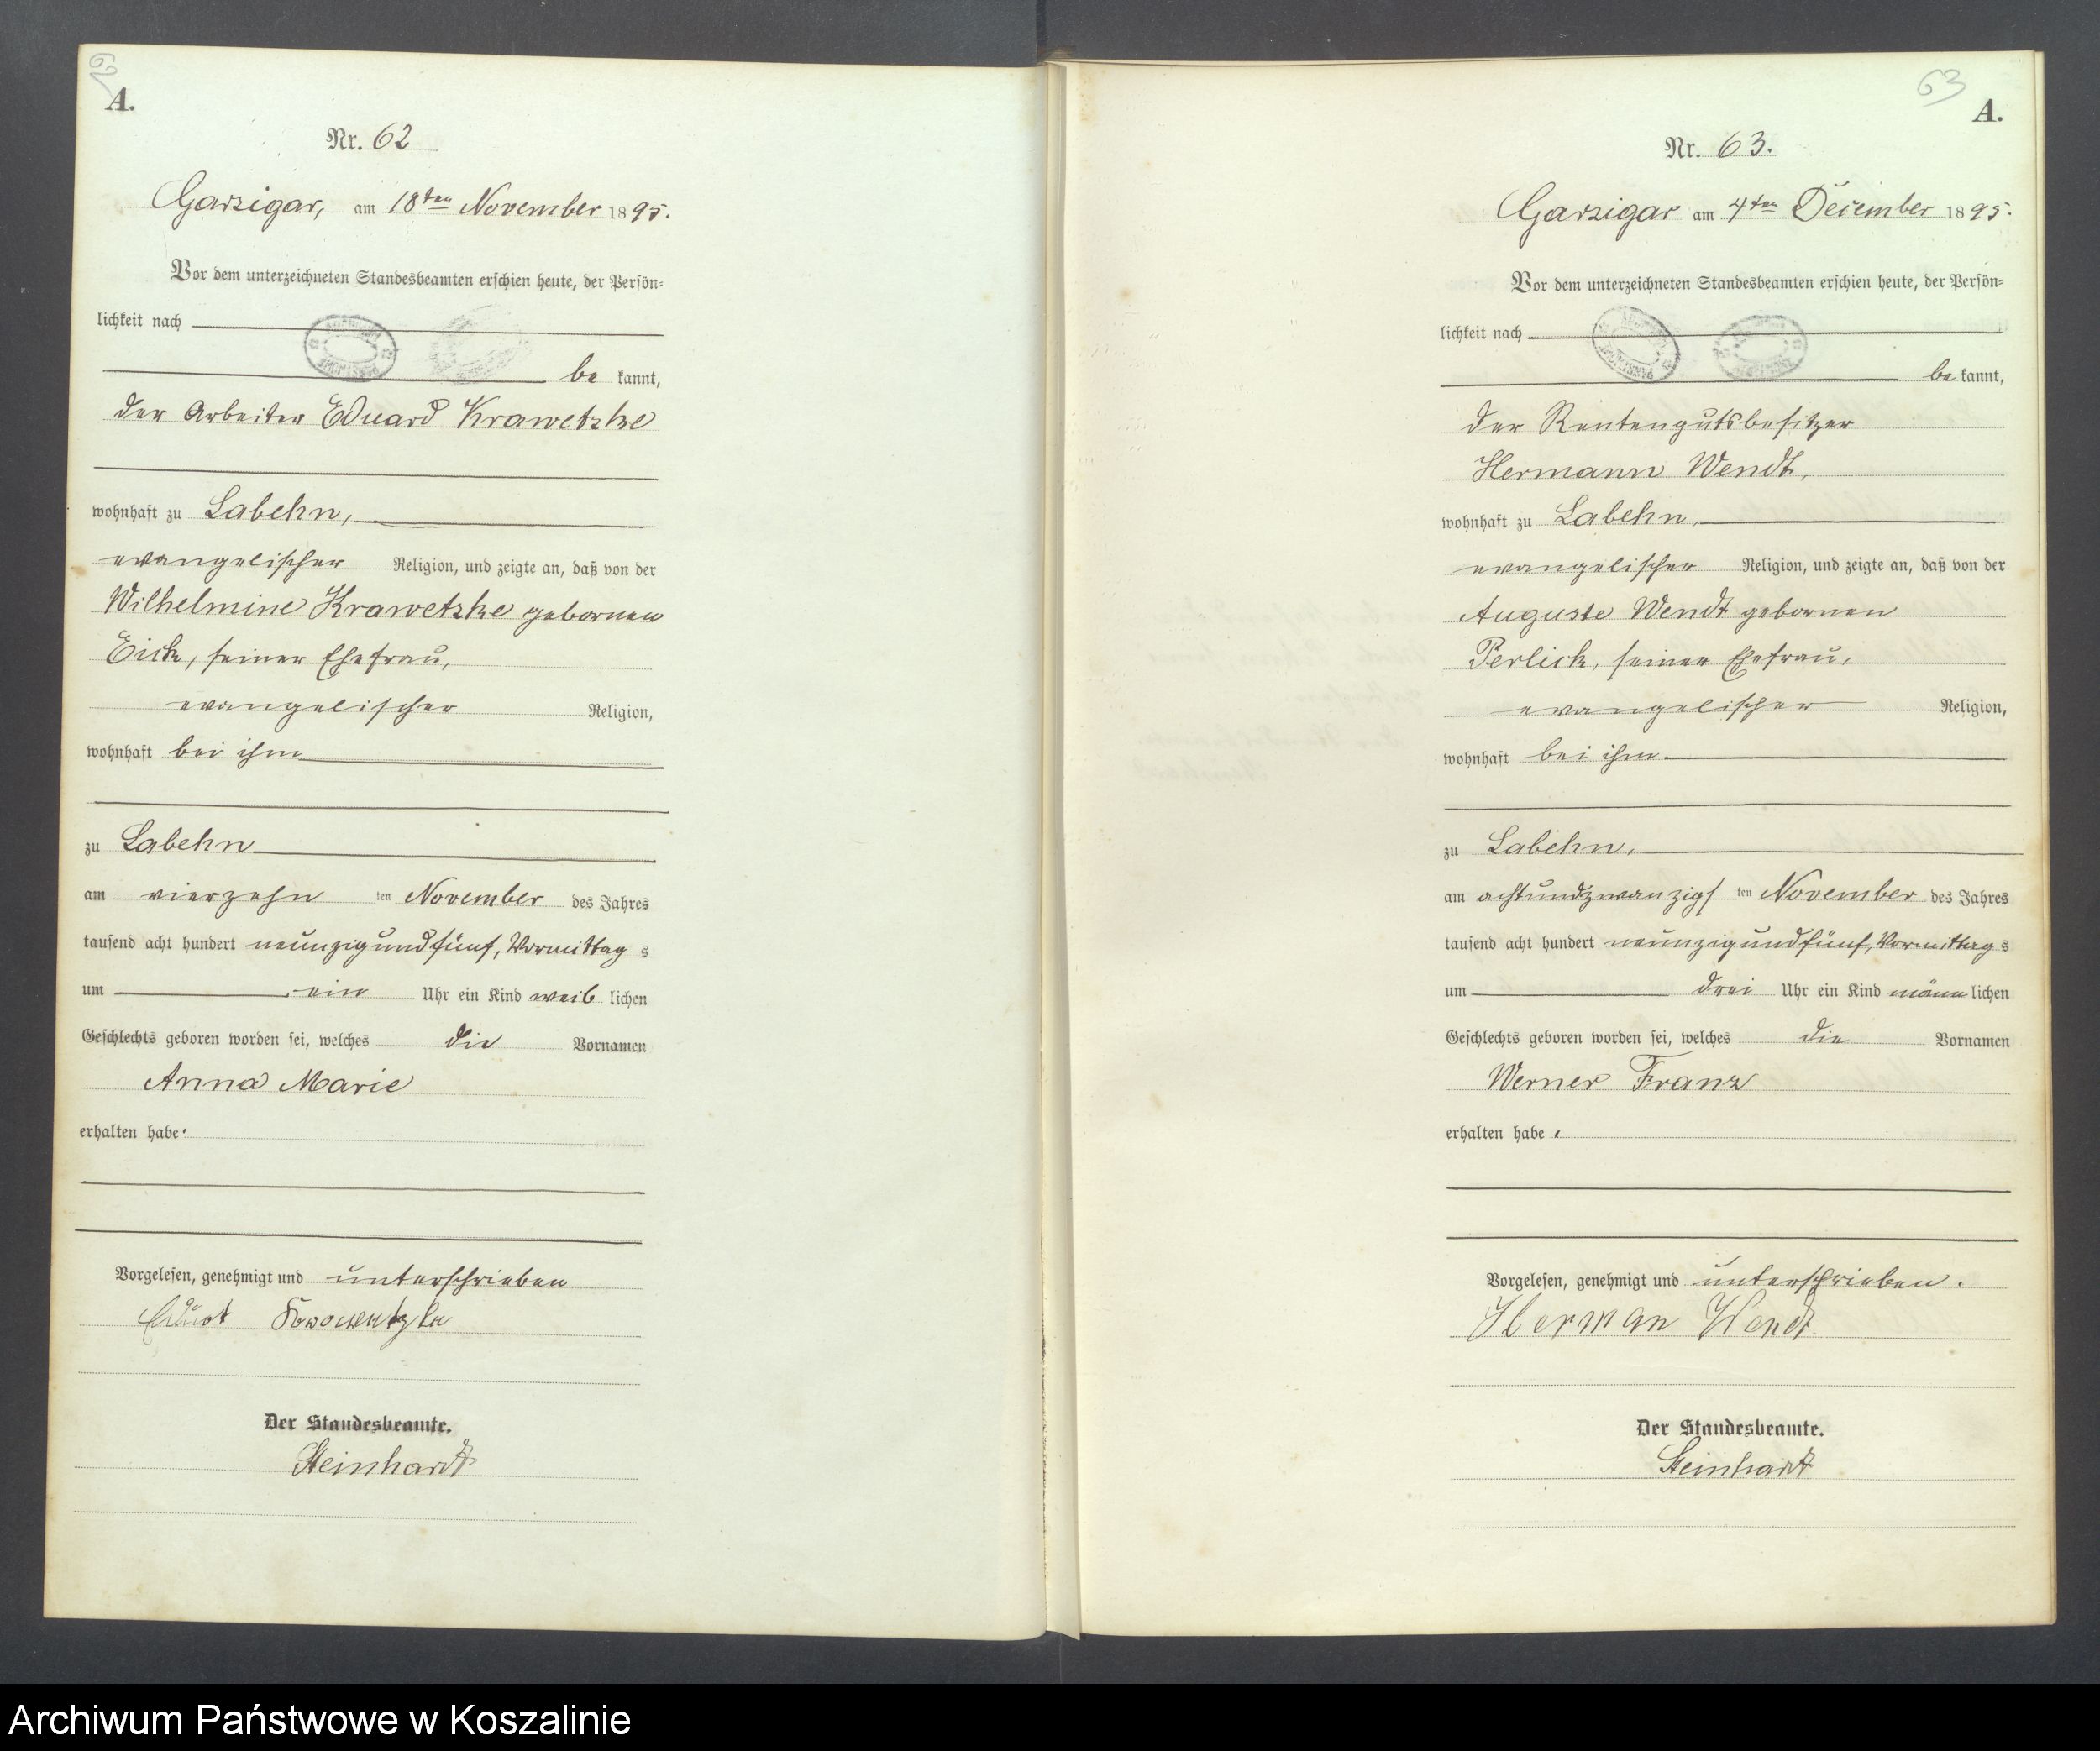 A.
Nr. 62
Garzigar, am 18ten November 1895.
Vor dem unterzeichneten Standesbeamten erschien heute, der Persön-
lichkeit nach
be kannt,
der Arbeiter Eduard Krawetzke
wohnhaft zu Labehn,
evangelischer Religion, und zeigte an, daß von der
Wilhelmine Krawetzke gebornen
Eick, seiner Ehefrau,
evangelischer Religion,
wohnhaft bei ihm
zu Labehn
am vierzehn ten November des Jahres
tausend acht hundert neunzig und fünf, Vormittag s
um ein Uhr ein Kind weib lichen
Geschlechts geboren worden sei, welches die Vornamen
Anna Marie
erhalten habe.
Vorgelesen, genehmigt und unterschrieben
Der Standesbeamte.
Steinhardt
63
A.
Nr. 63.
Garzigar am 4ten December 1895.
Vor dem unterzeichneten Standesbeamten erschien heute, der Persön-
lichkeit nach
be kannt,
der Rentengutsbesitzer
Hermann Wendt,
wohnhaft zu Labehn,
evangelischer Religion, und zeigte an, daß von der
Auguste Wendt gebornen
Perlick, seiner Ehefrau,
evangelischer Religion,
wohnhaft bei ihm.
zu Labehn,
am achtundzwanzigs ten November des Jahres
tausend acht hundert neunzig und fünf, Vormittag s
um drei Uhr ein Kind männ lichen
Geschlechts geboren worden sei, welches die Vornamen
Werner Franz
erhalten habe.
Vorgelesen, genehmigt und unterschrieben.
Herman Wendt
Der Standesbeamte.
Steinhardt
Archiwum Państwowe w Koszalinie